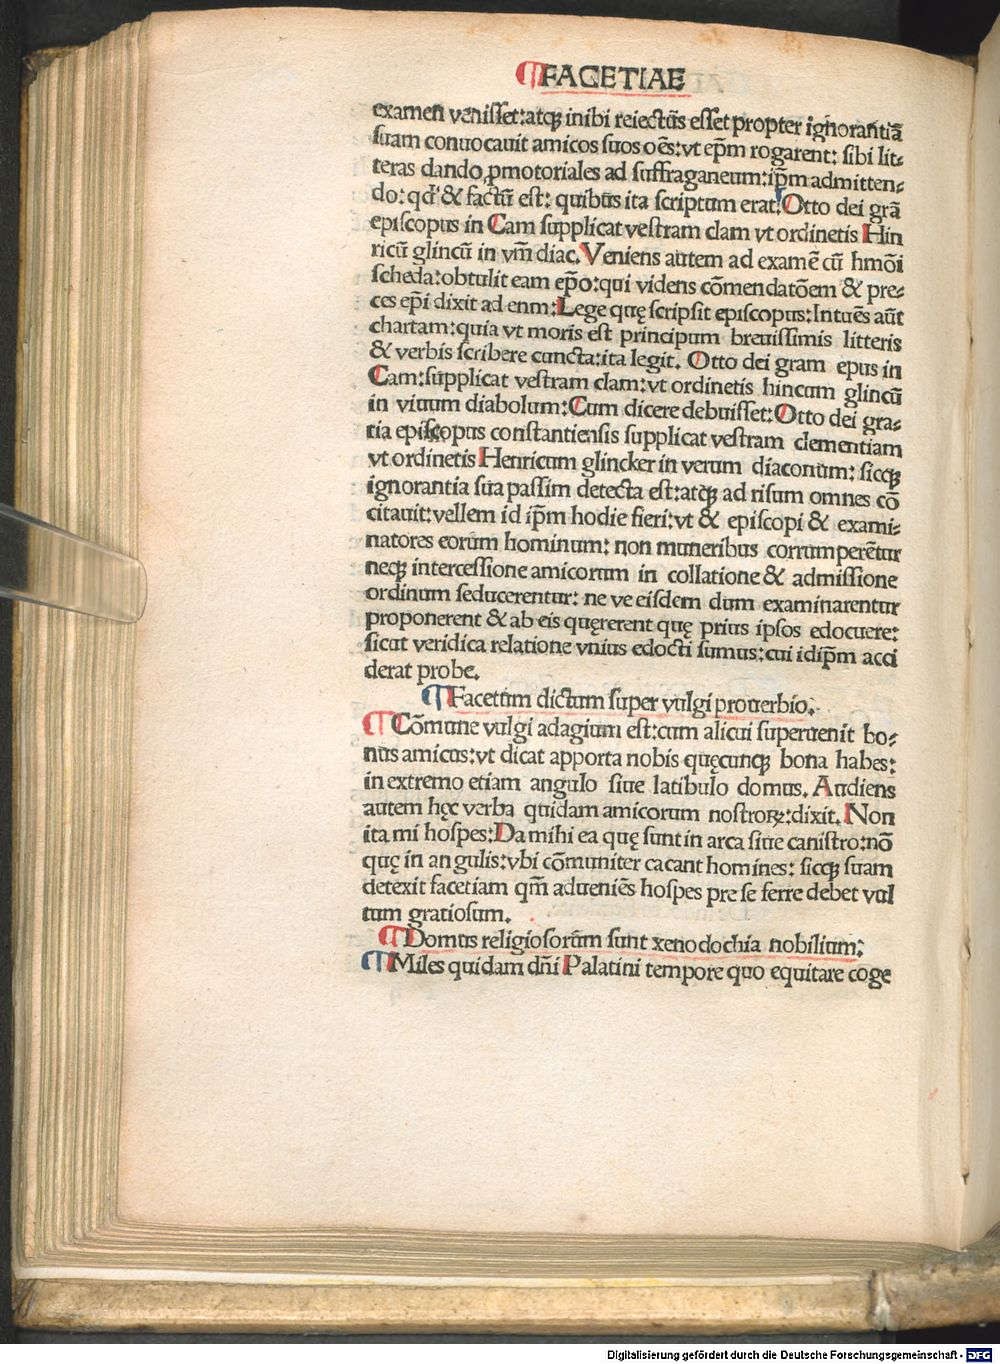 ¶FACETIAE
examen veniſſet:atqꝫ inibi reiectus eſſet propter ignorantiā
ſuam conuocauit amicos ſuos oēs:vt ep̄m rogarent: ſibi lit-
teras dando ꝓmotoriales ad ſuffraganeum:ip̄m admitten-
do: qď & factū eſt: quibus ita ſcriptum erat. Otto dei grā
epiſcopus in Cam ſupplicat veſtram clam vt ordinetis Hin
ricū glincū in vm̄ diac. Veniens autem ad examē cū hmōi
ſcheda:obtulit eam ep̄o:qui videns cōmendatōem & pre-
ces ep̄i dixit ad enm:Lege quę ſcripſit epiſcopus: Intuēs aūt
chartam:quia vt moris eſt principum breuiſſimis litteris
& verbis ſcribere cuncta:ita legit. Otto dei gram epus in
Cam:ſupplicat veſtram clam:vt ordinetis hincum glincū
in viuum diabolum:Cum dicere debuiſſet:Otto dei gra-
tia epiſcopus conſtantienſis ſupplicat veſtram clementiam
vt ordinetis Henricum glincker in verum diaconum: ſicqꝫ
ignorantia ſua paſſim detecta eſt:atqꝫ ad riſum omnes cō
citauit:vellem id ip̄m hodie fieri:vt & epiſcopi & exami-
natores eorum hominum: non muneribus corrumperētur
neqꝫ interceſſione amicorum in collatione & admiſſione
ordinum ſeducerentur: ne ve eiſdem dum examinarentur
proponerent & ab eis quęrerent quę prius ipſos edocuere:
ſicut veridica relatione vnius edocti ſumus:cui idip̄m acci
derat probe.
¶Facetum dictum ſuper vulgi prouerbio.
¶Cōmune vulgi adagium eſt:cum alicui ſuperuenit bo-
nus amicus:vt dicat apporta nobis quęcunqꝫ bona habes:
in extremo etiam angulo ſiue latibulo domus. Audiens
autem hęc verba quidam amicorum noſtroꝝ:dixit. Non
ita mi hoſpes:Da mihi ea quę ſunt in arca ſiue caniſtro:nō
quę in angulis:vbi cōmuniter cacant homines: ſicqꝫ ſuam
detexit facetiam qm̄ adueniēs hoſpes pre ſe ferre debet vul
tum gratioſum.
¶Domus religioſorum ſunt xenodochia nobilium:
¶Miles quidam dn̄i Palatini tempore quo equitare coge
Digitalisierung gefördert durch die Deutsche Forschungsgemeinschaft - DFG